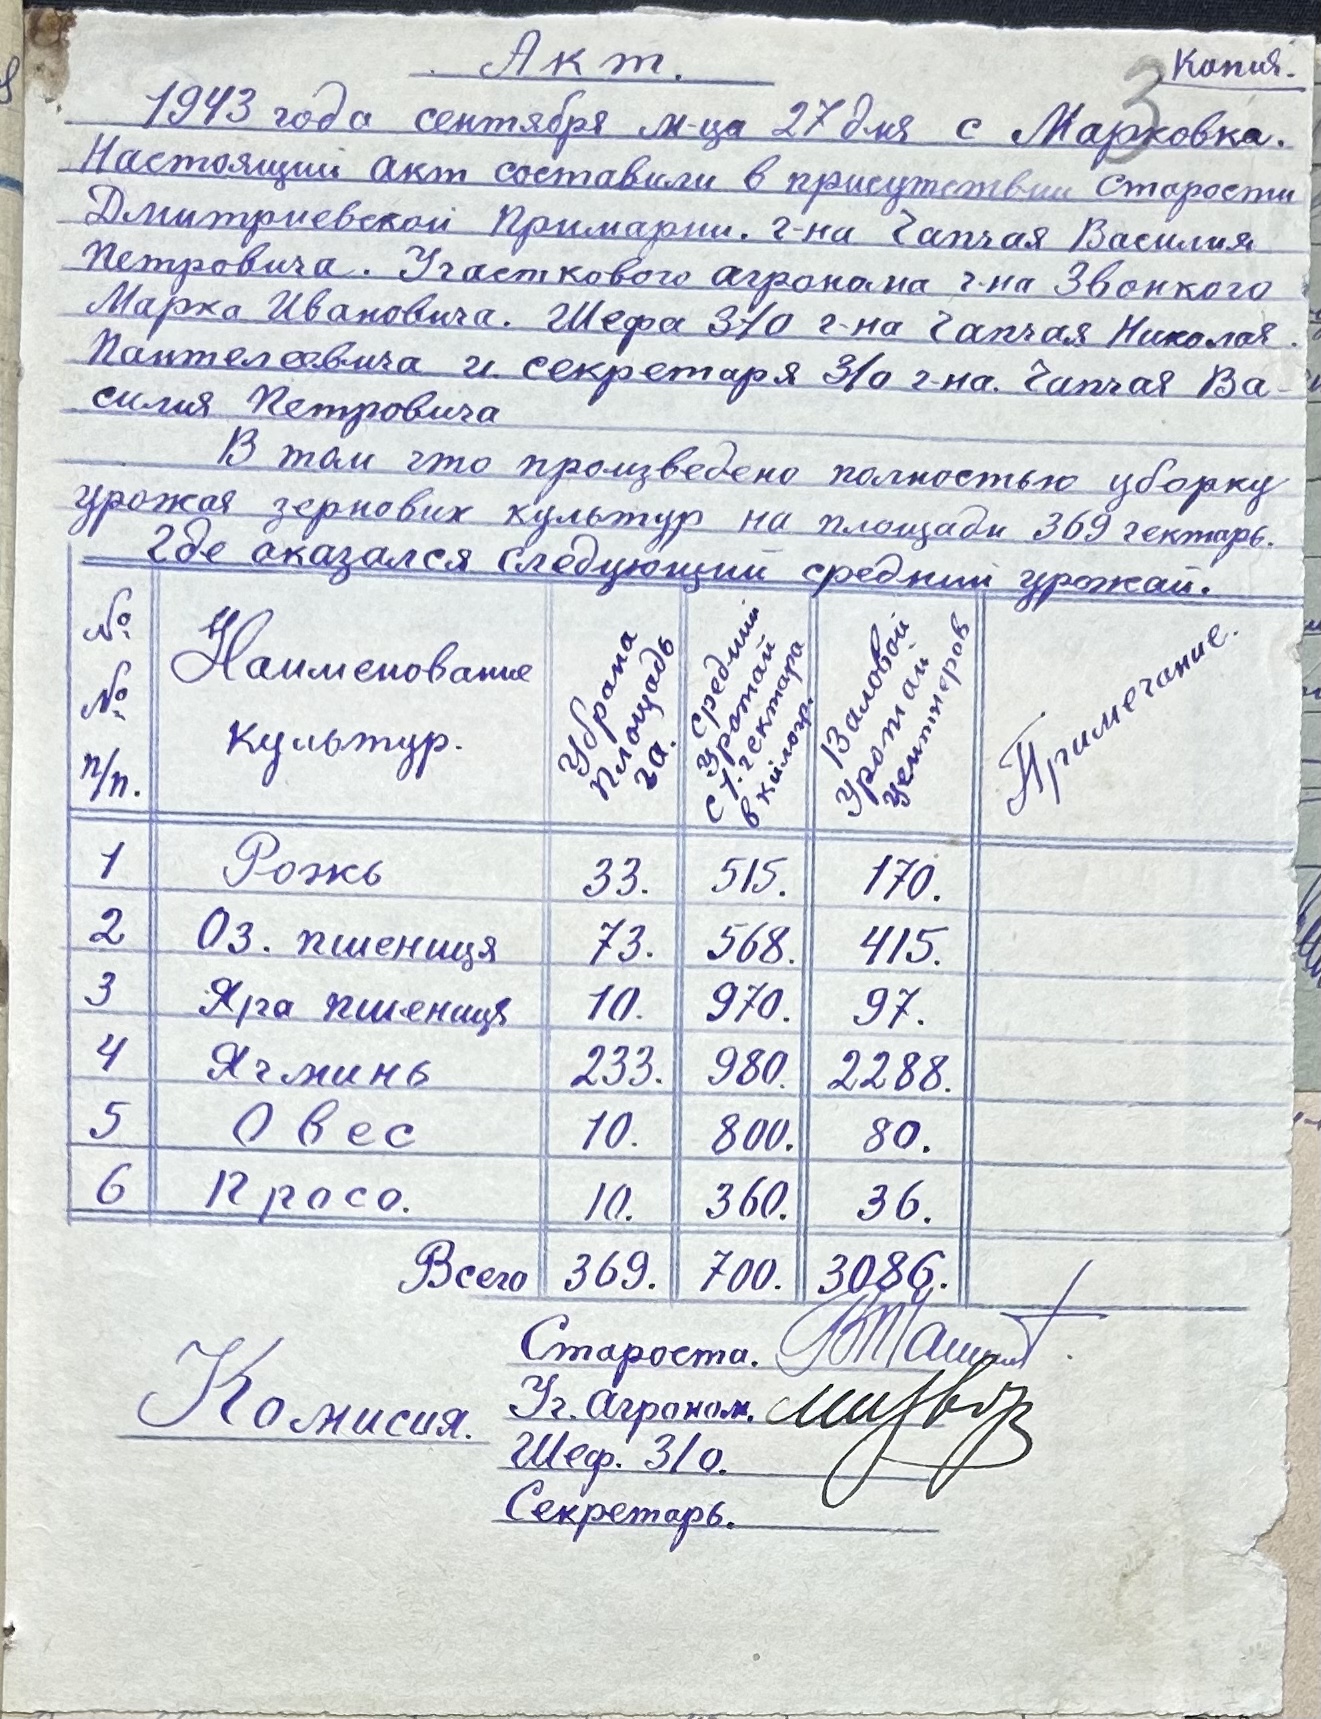 Копия.
3
Акт.
1943 года сентября м-ца 27 дня с Марковка.
Настоящий акт составили в присутствии старости
Дмитриевской Примарии. г-на Чапчая Василия
Петровича. Участкового агронома г-на Звонкого
Марка Ивановича. Шефа З/О г-на Чапчая Николая
Пантелеевича и секретаря З/О г-на. Чапчая Ва-
силия Петровича
В том что произведено полностью уборку
урожая зернових культур на площади 369 гектарь.
Где оказался следующий средний урожай.
№ № п/п. Наименование культур. Убрана площадь га. Средний урожай с 1. гектара в килогр. Валовой урожай центнеров Примечание.
1 Рожь 33. 515. 170.
2 Оз. пшениця 73. 568. 415.
3 Яра пшениця 10. 970. 97.
4 Ячминь 233. 980. 2288.
5 Овес 10. 800. 80.
6 Просо. 10. 360. 36.
Всего 369. 700. 3086.
Комисия.
Староста.
Уч. агроном.
Шеф. З/О.
Секретарь.